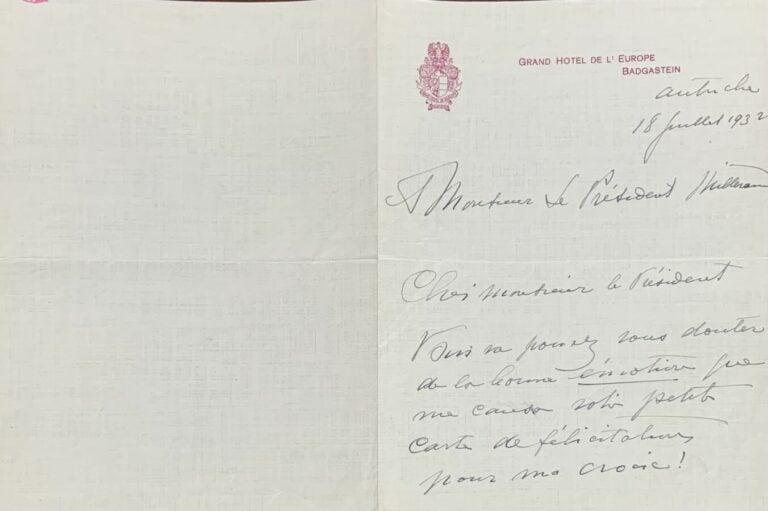 GRAND HOTEL DE L' EUROPE
BADGASTEIN
Autriche
18 Juillet 1932
A Monsieur Le Président Millerand
Cher Monsieur le Président
Vous ne pouvez vous douter
de la bonne émotion que
me causa votre petite
carte de félicitations
pour ma croix !